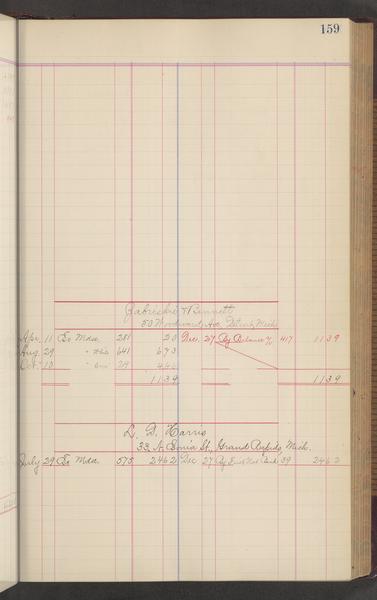 159
50 Woodward Ave. Detroit, Mich.
Apr. 11 To Mdse. 281 20 Dec. 27 By Balance 417 1139
Aug. 29 " " 641 673
Oct. 10 " " 446
1139 1139
L. G. Harris
33 N. Ionia St., Grand Rapids, Mich.
July 29 To Mdse. 575 2462 Dec 27 By 39 2462